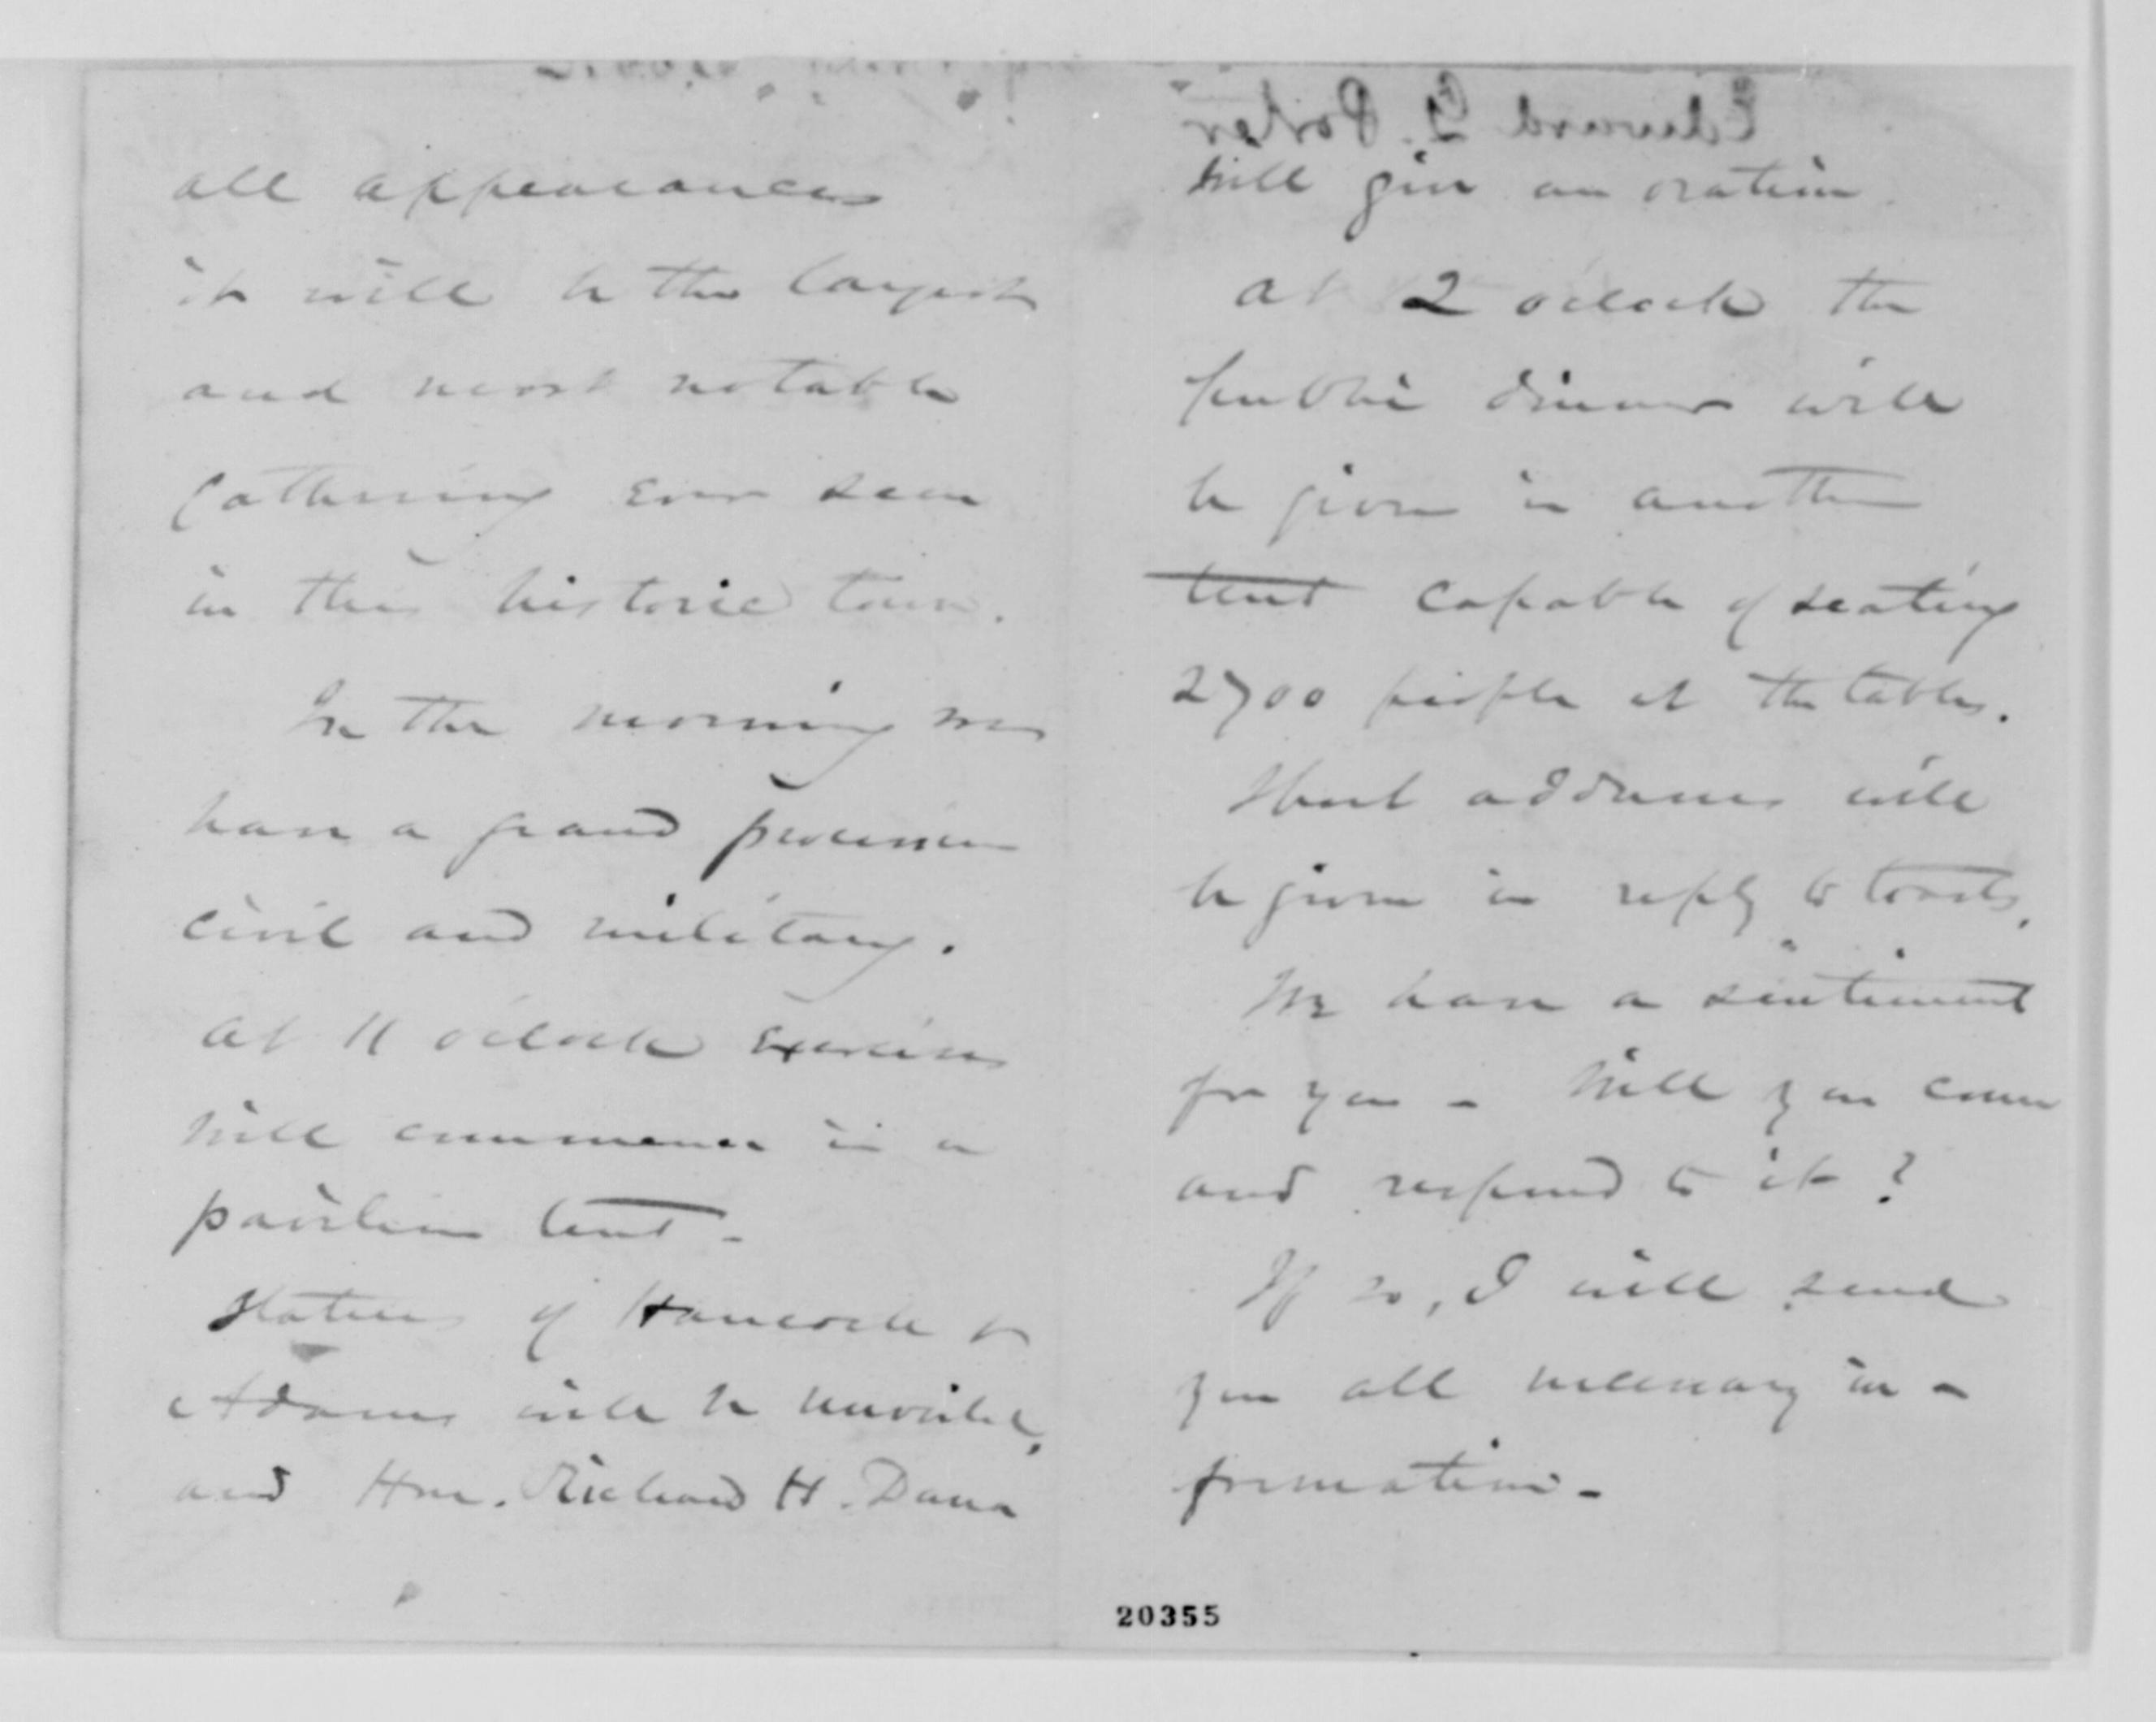 all appearances
it will be the largest
and most notable
gathering ever seen
in this historic town.
In the morning we
have a grand procession
civil and military.
At 11 o'clock exercises
will commence in a
pavilion tent -
Statues of Hancock &
Adams will be unveiled,
and Hon. Richard H. Dana
Edward G. Porter
will give an oration.
At 2 o'clock the
public dinner will
be given in another
tent capable of seating
2700 people at the tables.
Short addresses will
be given in reply to toasts.
We have a sentiment
for you - Will you come
and respond to it?
If so, I will send
you all necessary in-
formation -
20355